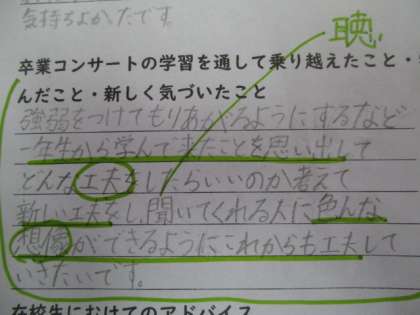 気持ちよかたです。
聴
卒業コンサートの学習を通して乗り越えたこと・
んだこと・新しく気づいたこと
強弱をつけてもりあがるようにするなど
一年生から学んで来たことを思い出して
どんな工夫をしたらいいのか考えて
新しい工夫をし、聞いてくれる人に色んな
想像ができるようにこれからも工夫して
いきたいです。
在校生にむけてのアドバイス